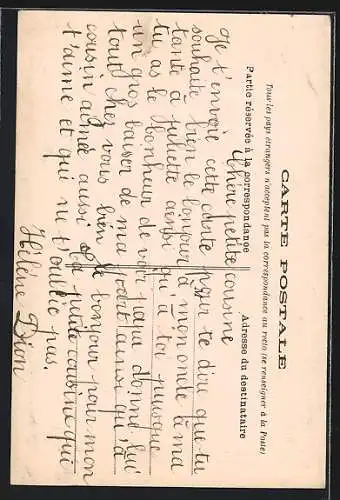 CARTE POSTALE
Tous les pays étrangers n'acceptent pas la correspondance au recto (se renseigner à la Poste)
Partie réservée à la correspondance
Adresse du destinataire
Chère petite cousine
Je t'envoie cette carte pour te dire que tu
souhaite bien le bonjour à mon oncle à ma
tante à juliette ainsi qu'à toi puisque
tu as le bonheur de voir papa donne lui
un gros baiser de ma part ainsi qu'à
tout chez vous bien le bonjour pour mon
cousin aimée aussi ta petite cousine qui
t'aime et qui ne t'oublie pas.
Hélène Dion